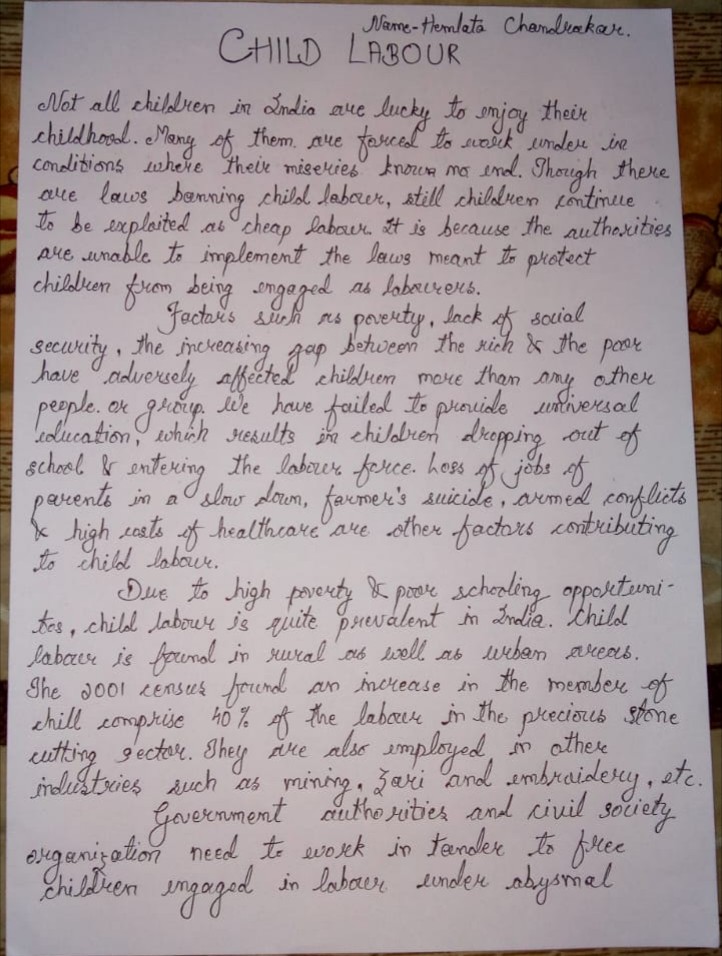 Name-Hemlata Chandrakar.
CHILD LABOUR
Not all children in India are lucky to enjoy their
childhood. Many of them are forced to work under in
conditions where their miseries known no end. Though there
are laws banning child labour, still children continue
to be exploited as cheap labour. It is because the authorities
are unable to implement the laws meant to protect
children from being engaged as labourers.
Factors such as poverty, lack of social
security, the increasing gap between the rich & the poor
have adversely affected children more than any other
people. or group. We have failed to provide universal
education, which results in children dropping out of
school & entering the labour force. Loss of jobs of
parents in a slow down, farmer's suicide, armed conflicts
& high costs of healthcare are other factors contributing
to child labour.
Due to high poverty & poor schooling opportuni-
tes, child labour is quite prevalent in India. Child
labour is found in rural as well as urban areas.
The 2001 census found an increase in the member of
chill comprise 40% of the labour in the precious stone
cutting sector. They are also employed in other
industries such as mining, Zari and embraidery, etc.
Government authorities and civil society
organization need to work in tander to free
children engaged in labour under abysmal